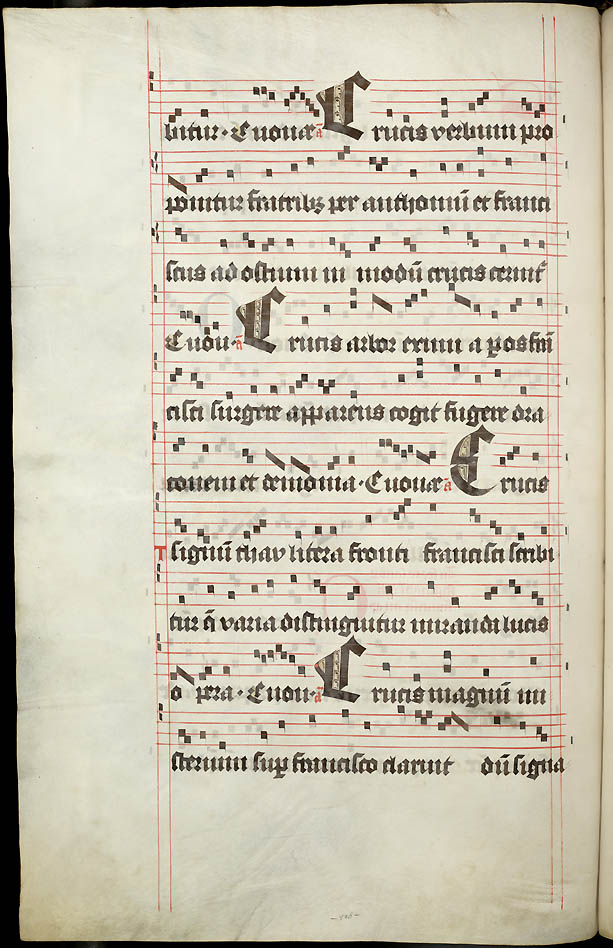 bitur · Euouae a Crucis verbum pro
ponitur fratribꝫ per anthoniū et franci
scus ad ostium in modū crucis cernit᷑
Euou · a Crucis arbor eximi a pos fr̄ī
cisci surgere apparens cogit fugere dra
conem et demonia · Euouae a Crucis
T signum thau litera fronti francisci scribi
tur q̄ varia distinguitur mirandi lucis
o pera · Euou · a Crucis magnū mi
sterium suꝑ francisco claruit dū signa